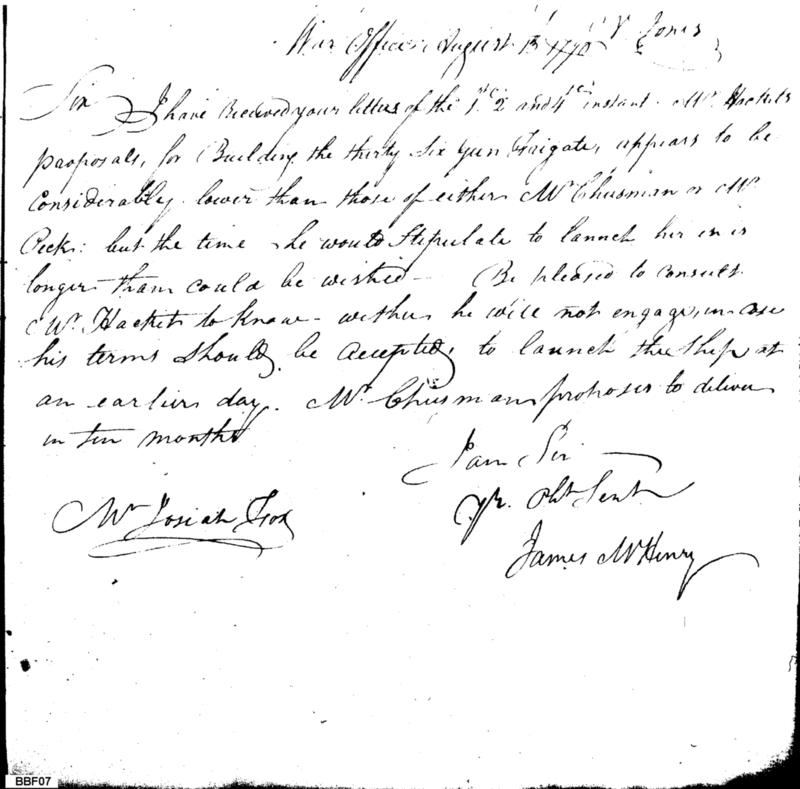 War Office August
Sir I have Received your letters of the 1st 2 and 4th instant. Mr. Hackets
proposals, for Building the thirty Six Gun Frigate, appears to be
Considerably lower than those of either Mr. Chusman or Mr.
Peck: but the time he would Stipulate to launch her in is
longer than could be wished — Be pleased to consult
Mr. Hacket to know — wether he will not engage, in case
his terms should be accepted, to launch the Ship at
an earlier day. Mr. Chusman proposes to deliver
in ten months
I am Sir
Yr. Obt Servt
Mr Josiah Fox
James McHenry
BBF07